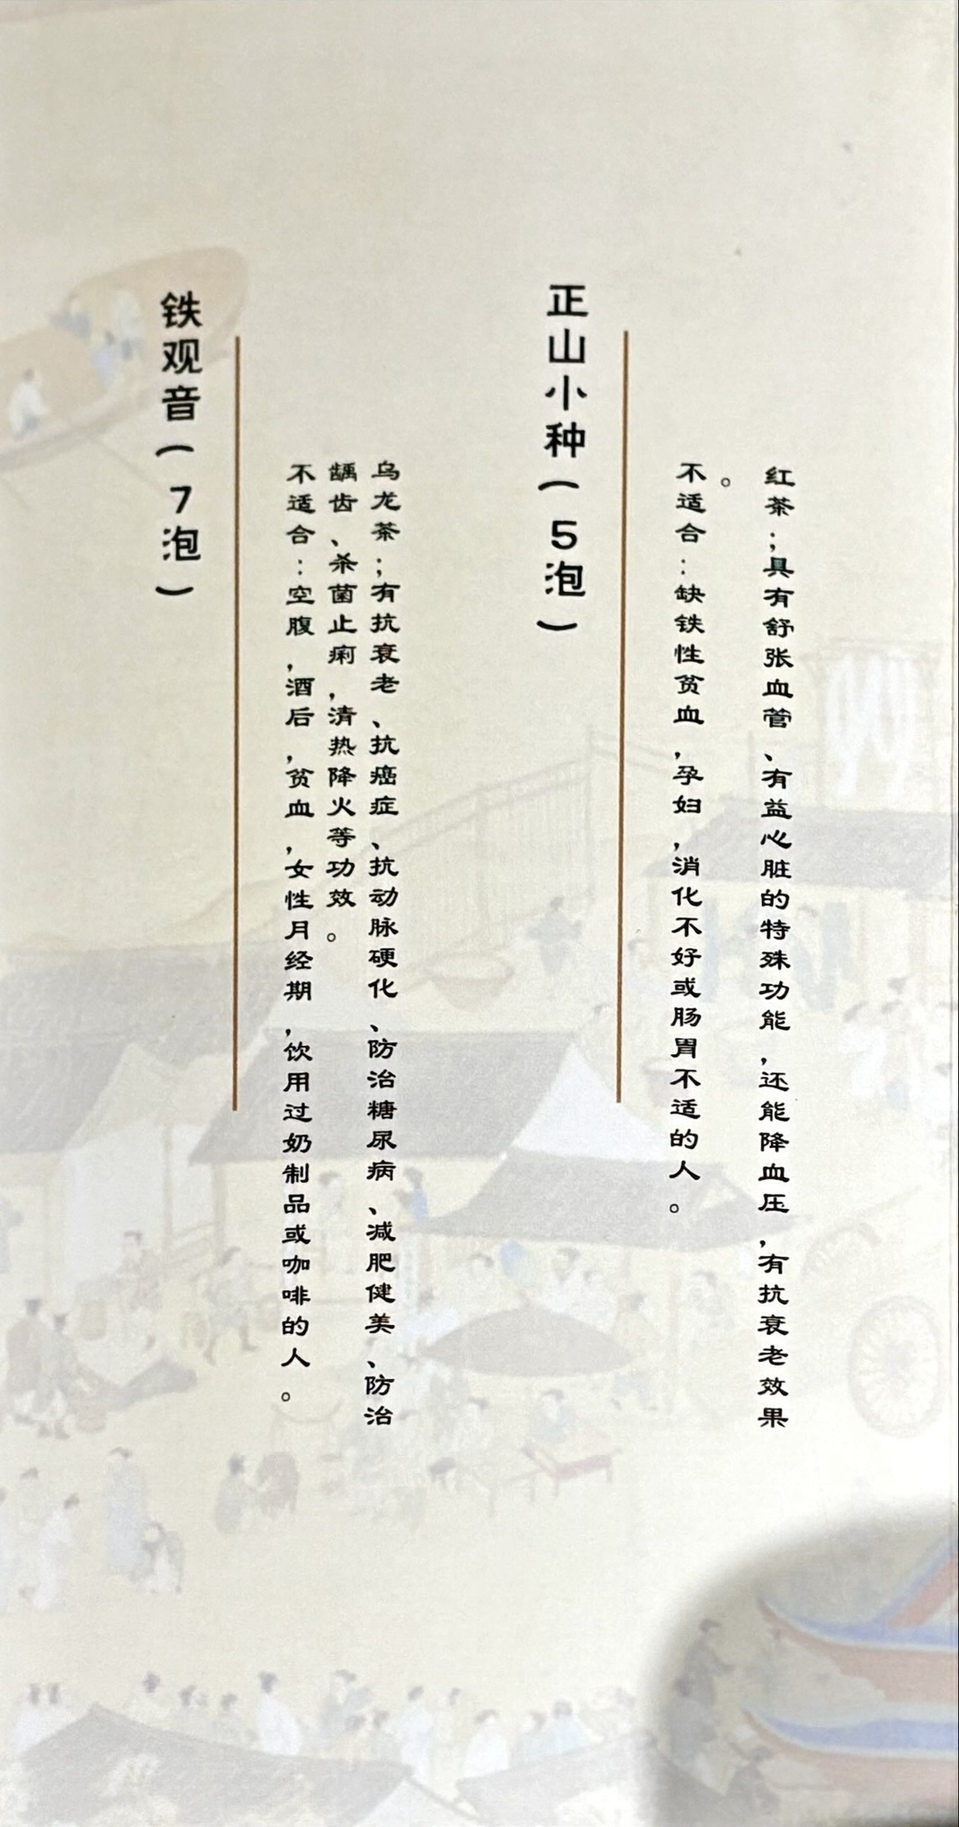 正山小种(5泡)
红茶;具有舒张血管、有益心脏的特殊功能,还能降血压,有抗衰老效果
。
不适合:缺铁性贫血,孕妇,消化不好或肠胃不适的人。
铁观音(7泡)
乌龙茶;有抗衰老、抗癌症、抗动脉硬化、防治糖尿病、减肥健美、防治
龋齿、杀菌止痢,清热降火等功效。
不适合:空腹,酒后,贫血,女性月经期,饮用过奶制品或咖啡的人。